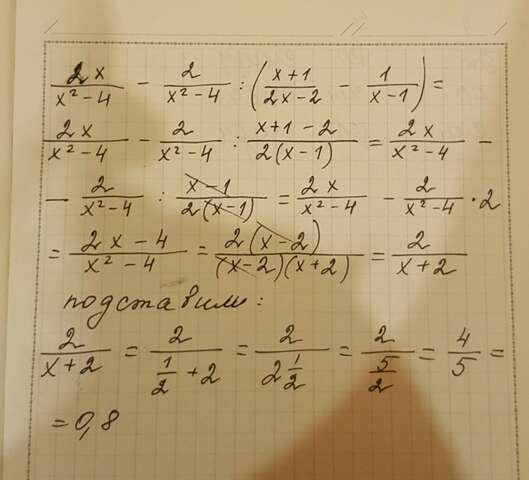 2x/(x²-4) - 2/(x²-4) : ((x+1)/(2x-2) - 1/(x-1)) =
2x/(x²-4) - 2/(x²-4) : (x+1-2)/(2(x-1)) = 2x/(x²-4) -
- 2/(x²-4) : (x-1)/(2(x-1)) = 2x/(x²-4) - 2/(x²-4) · 2
= (2x-4)/(x²-4) = 2(x-2)/((x-2)(x+2)) = 2/(x+2)
подставим:
2/(x+2) = 2/(1/2+2) = 2/(2 1/2) = 2/(5/2) = 4/5 =
= 0,8